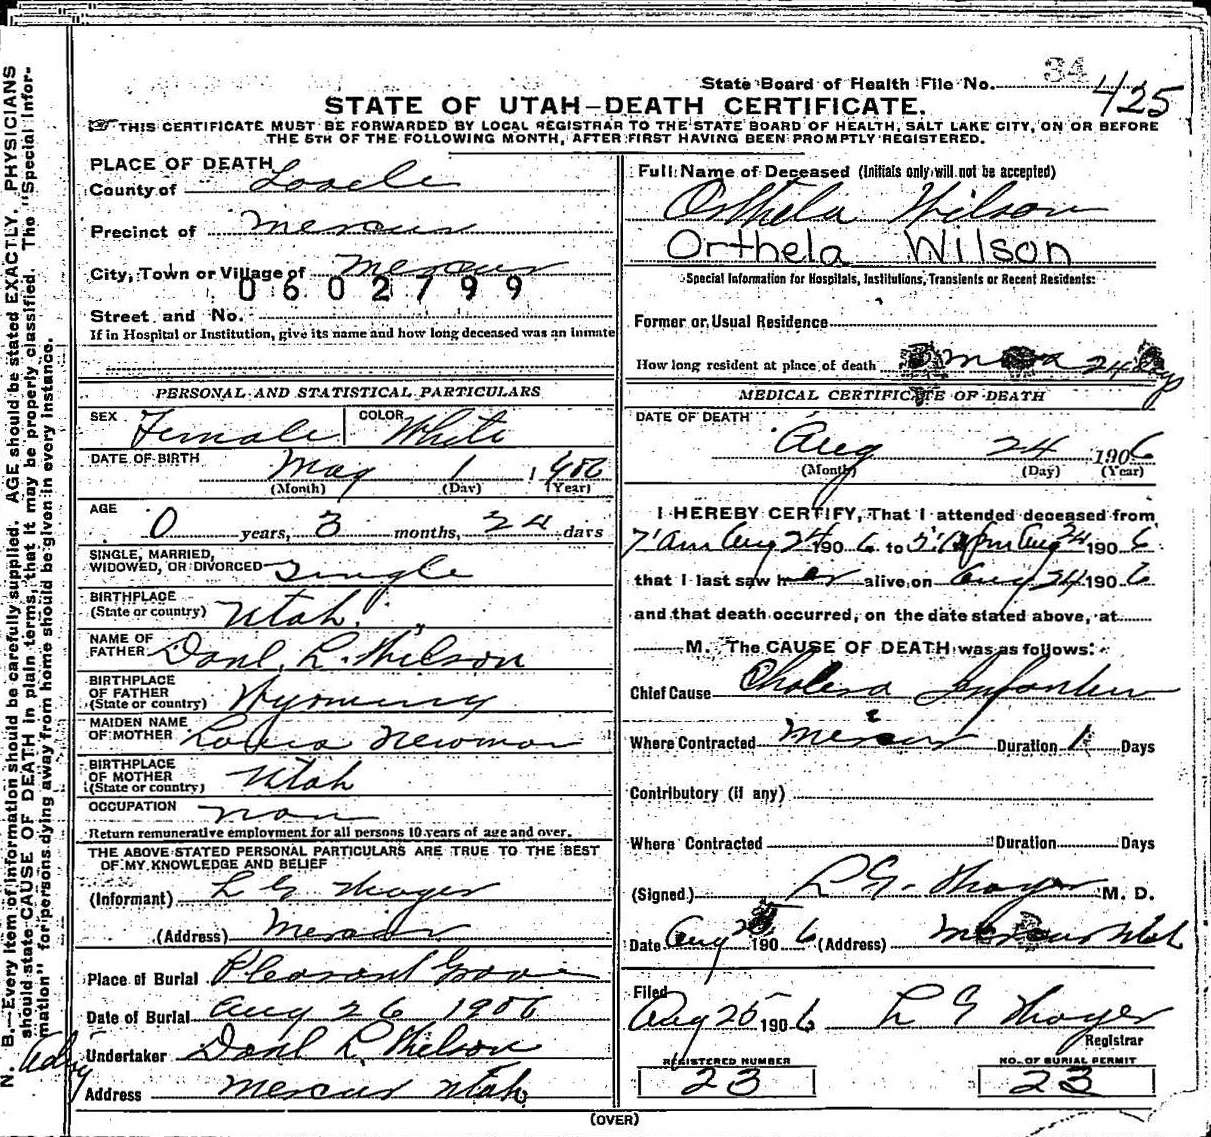 34
State Board of Health File No. 425
STATE OF UTAH—DEATH CERTIFICATE.
THIS CERTIFICATE MUST BE FORWARDED BY LOCAL REGISTRAR TO THE STATE BOARD OF HEALTH, SALT LAKE CITY, ON OR BEFORE
THE 5TH OF THE FOLLOWING MONTH, AFTER FIRST HAVING BEEN PROMPTLY REGISTERED.
N. B.—Every item of information should be carefully supplied. AGE should be stated EXACTLY. PHYSICIANS
should state CAUSE OF DEATH in plain terms, that it may be properly classified. The "Special Infor-
mation" for persons dying away from home should be given in every instance.
PLACE OF DEATH
County of Tooele
Precinct of Mercur
City, Town or Village of Mercur
0602799
Street and No.
If in Hospital or Institution, give its name and how long deceased was an inmate
PERSONAL AND STATISTICAL PARTICULARS
SEX Female COLOR White
DATE OF BIRTH May 1 1906
(Month) (Day) (Year)
AGE 0 years, 3 months, 24 days
SINGLE, MARRIED,
WIDOWED, OR DIVORCED Single
BIRTHPLACE
(State or country) Utah.
NAME OF
FATHER Danl. L. Wilson
BIRTHPLACE
OF FATHER
(State or country) Wyoming
MAIDEN NAME
OF MOTHER Newman
BIRTHPLACE
OF MOTHER
(State or country) Utah
OCCUPATION non
Return remunerative employment for all persons 10 years of age and over.
THE ABOVE STATED PERSONAL PARTICULARS ARE TRUE TO THE BEST
OF MY KNOWLEDGE AND BELIEF
(Informant) L G Thayer
(Address) Mercur
Place of Burial Pleasant Grove
Date of Burial Aug 26 1906
Undertaker Danl L. Wilson
Address Mercur Utah
Full Name of Deceased (Initials only will not be accepted)
Orthela Wilson
Orthela Wilson
Special Information for Hospitals, Institutions, Transients or Recent Residents:
Former or Usual Residence
How long resident at place of death 3 24 days
MEDICAL CERTIFICATE OF DEATH
DATE OF DEATH
Aug 24 1906
(Month) (Day) (Year)
I HEREBY CERTIFY, That I attended deceased from
7 am Aug 24 1906 to pm Aug 24 1906
that I last saw her alive on Aug 24 1906
and that death occurred, on the date stated above, at
M. The CAUSE OF DEATH was as follows:
Chief Cause Cholera Infantum
Where Contracted Mercur Duration 1 Days
Contributory (if any)
Where Contracted Duration Days
(Signed) L. G. Thayer M. D.
Date Aug 25 1906 (Address) Mercur Utah
Filed
Aug 25 1906 L G Thayer
Registrar
REGISTERED NUMBER
23
NO. OF BURIAL PERMIT
23
(OVER)